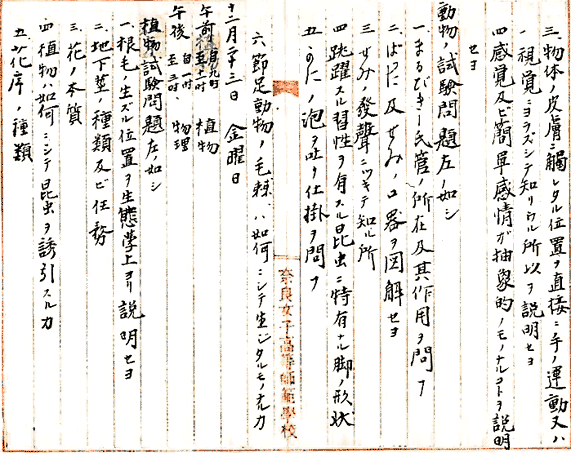 三、物体ノ皮膚ニ觸レタル位置ヲ直接ニ手ノ運動又ハ
視覚ニヨラズシテ知リウル所以ヲ説明セヨ
四、感覚及ビ簡単感情ガ抽象的ノモノナルコトヲ説明
セヨ
動物ノ試験問題左ノ如シ
一、まるぴぎー氏管ノ所在及其作用ヲ問フ
二、ばった及せみノ口器ヲ図解セヨ
三、せみノ發聲ニツキテ知ル所
四、跳躍スル習性ヲ有スル昆虫ニ特有ナル脚ノ形状
五、かにノ泡ヲ吐ク仕掛ヲ問フ
奈良女子高等師範學校
六、節足動物ノ毛棘ハ如何ニシテ生ジタルモノナルカ
十二月二十三日 金曜日
午前 自九时 至十一时 植物
午後 自一时 至三时 物理
植物試験問題左ノ如シ
一、根毛ノ生ズル位置ヲ生態学上ヨリ説明セヨ
二、地下莖ノ種類及ビ任務
三、花ノ本質
四、植物ハ如何ニシテ昆虫ヲ誘引スルカ
五、花序ノ種類